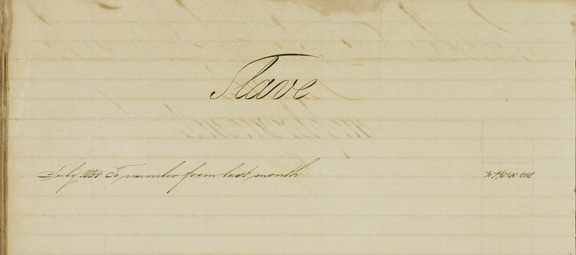 Slave
July 1834 To number from last month